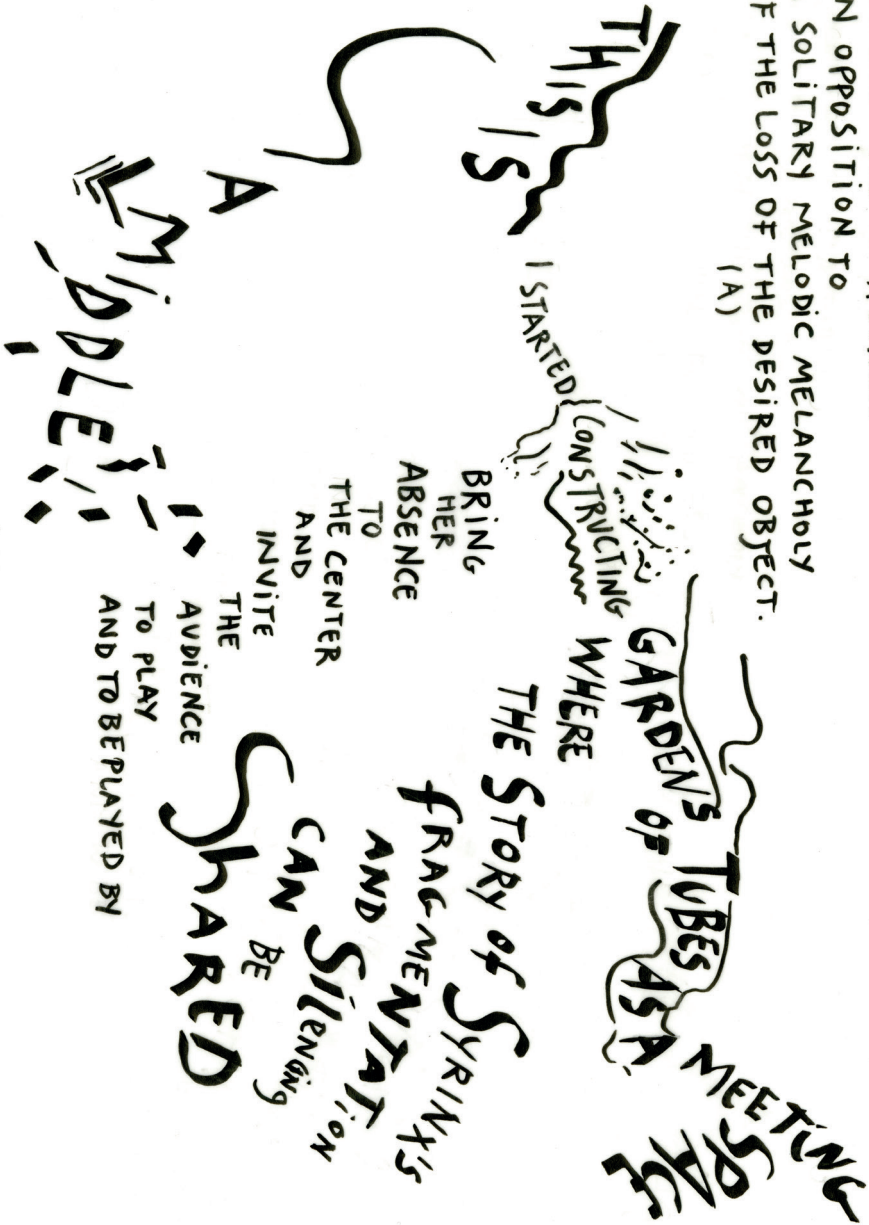 N OPPOSITION TO
SOLITARY MELODIC MELANCHOLY
F THE LOSS OF THE DESIRED OBJECT.
(A)
THIS IS
A
MIDDLE
I STARTED
CONSTRUCTING
GARDENS OF
TUBES
AS A
MEETING
SPACE
WHERE
THE STORY of SYRINX'S
fRAGMENTATION
AND SILENCING
CAN BE
SHARED
BRING
HER
ABSENCE
TO
THE CENTER
AND
INVITE
THE
AUDIENCE
TO PLAY
AND TO BE PLAYED BY